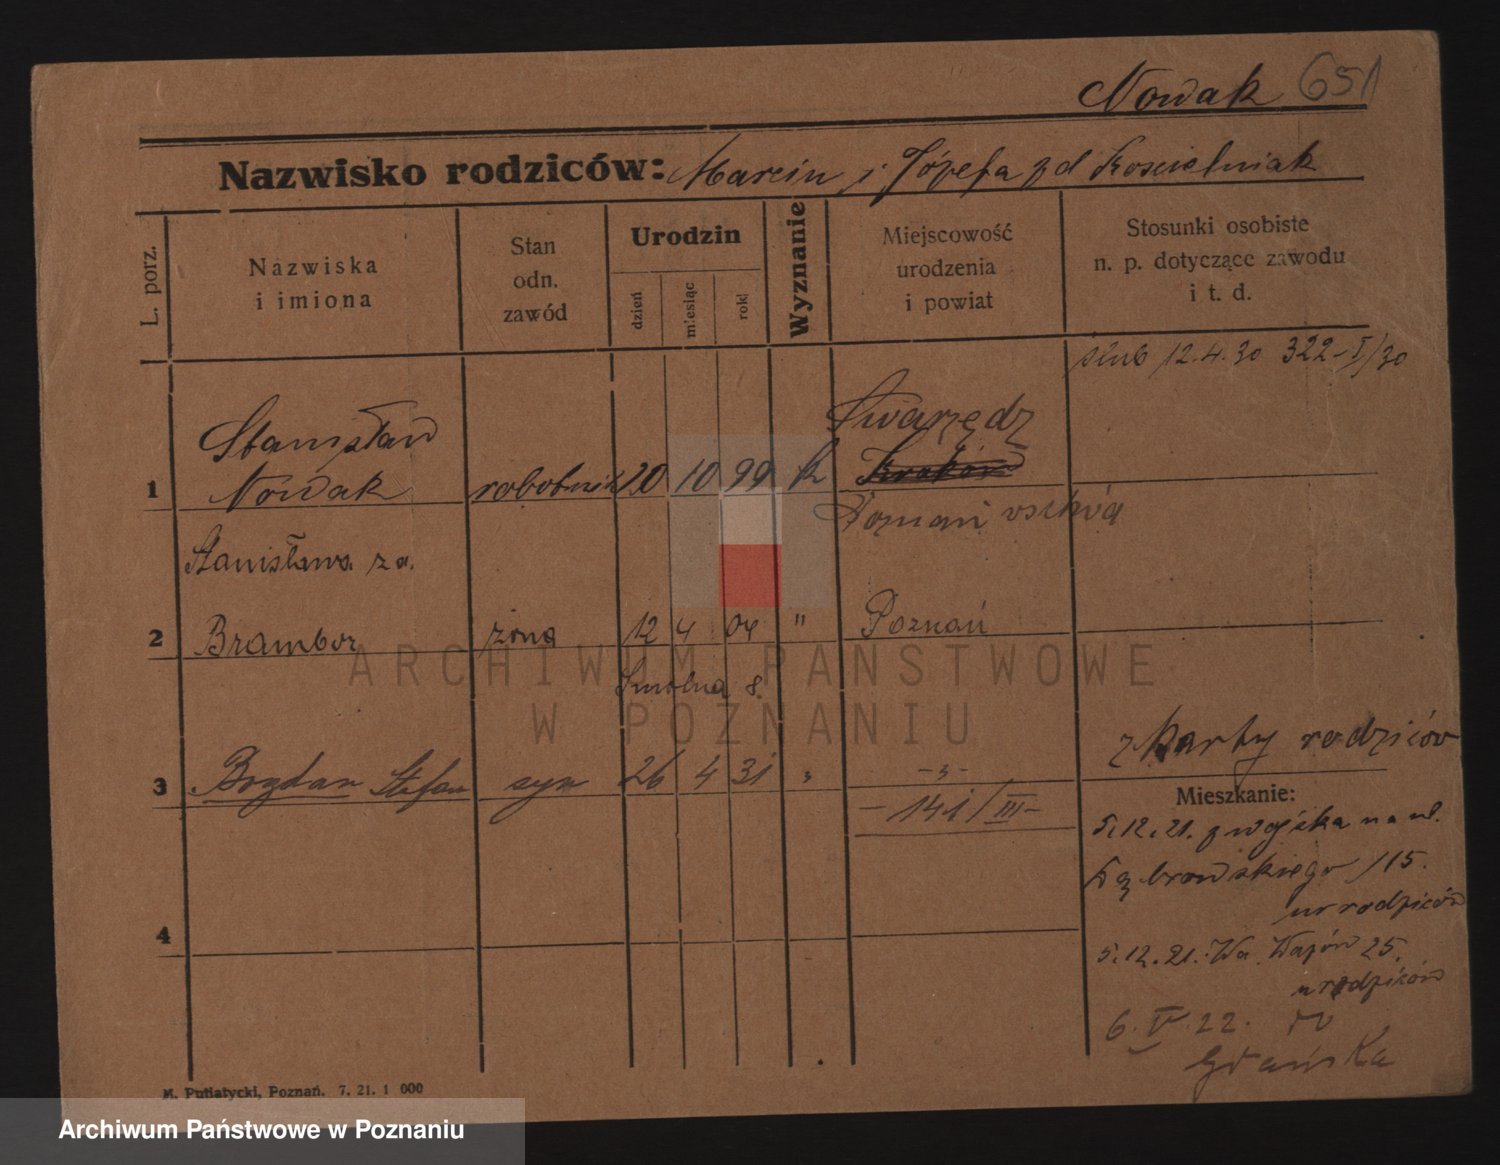 Nowak 651
Nazwisko rodziców: Marcin i Józefa zd Kościelniak
L. porz.
Nazwiska
i imiona
Stan
odn.
zawód
Urodzin
dzień
miesiąc
rok
Wyznanie
Miejscowość
urodzenia
i powiat
Stosunki osobiste
n. p. dotyczące zawodu
i t. d.
ślub 12.4.30 322-I/30
1
Stanisław
Nowak
robotnik 20 10 99 k
Swarzędz
Kraków
Poznań wschód
2
Stanisława za.
Brambor żona 12 4 04 " Poznań
Smolna 8.
z karty rodziców
3 Bogdan Stefan syn 26 4 31 " -"-
- 141/III -
Mieszkanie:
5.12.21. z wojska na ul.
Dąbrowskiego 115.
u rodziców
4
5.12.21. Wa Wazów 25.
u rodziców
6.V.22. do
Gdańska
M. Putiatycki, Poznań. 7. 21. 1 000
ARCHIWUM PAŃSTWOWE
W POZNANIU
Archiwum Państwowe w Poznaniu